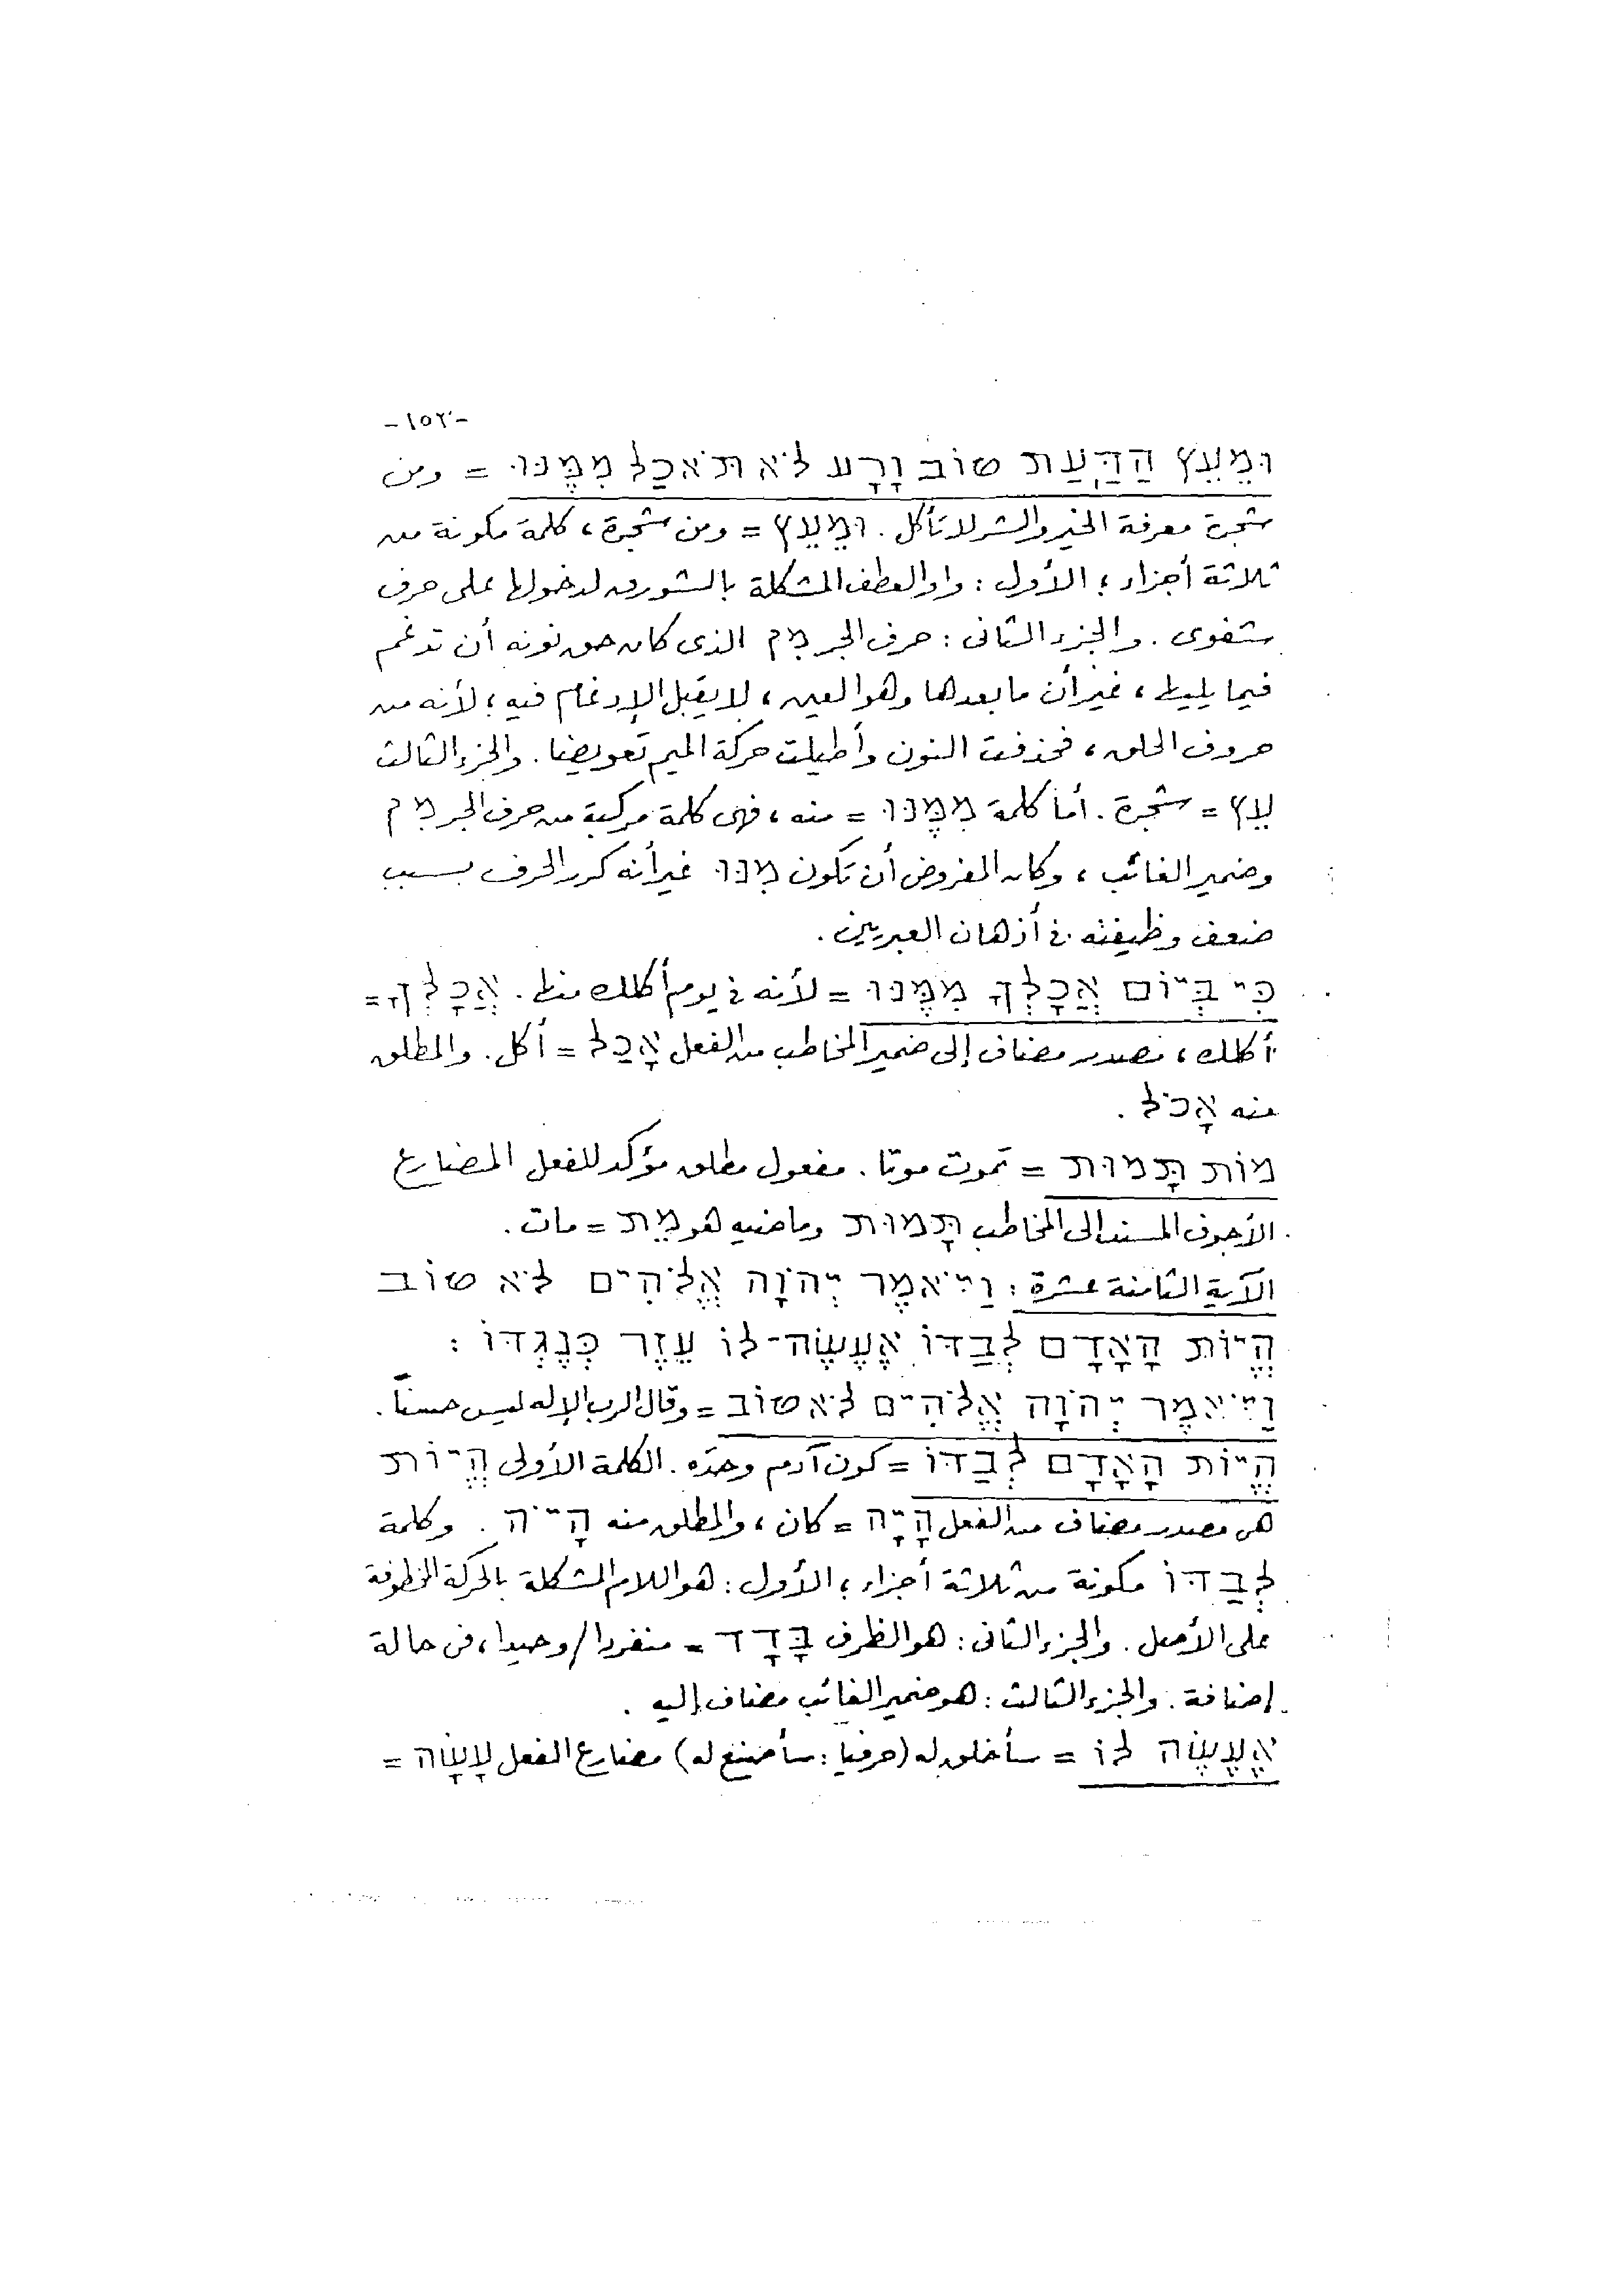 -١٥٢-
וּמֵעֵץ הַדַּעַת טוֹב וָרָע לֹא תֹּאכַל מִמֶּנּוּ = ومن
شجرة معرفة الخير والشر لا تأكل. וּמֵעֵץ = ومن شجرة، كلمة مكونة من
ثلاثة أجزاء؛ الأول: واو العطف المشكلة بالشورق لدخولها على حرف
شفوى. والجزء الثانى: حرف الجر מִן الذى كان حق نونه أن تدغم
فيما يليها، غير أن ما بعدها وهو العين، لا يقبل الإدغام فيه؛ لأنه من
حروف الحلق، فحذفت النون وأطيلت حركة الميم تعويضا. والجزء الثالث
עֵץ = شجرة. أما كلمة מִמֶּנּוּ = منه، فهى كلمة مركبة من حرف الجر מִן
وضمير الغائب، وكان المفروض أن تكون מִנּוּ غير أنه كرر الحرف بسبب
ضعف وظيفته فى أذهان العبريين.
כִּי בְּיוֹם אֲכָלְךָ מִמֶּנּוּ = لأنه فى يوم أكلك منها. אֲכָלְךָ =
أكلك، مصدر مضاف إلى ضمير المخاطب من الفعل אָכַל = أكل. والمطلق
منه אָכֹל.
מוֹת תָּמוּת = تموت موتا. مفعول مطلق مؤكد للفعل المضارع
الأجوف المسند إلى المخاطب תָּמוּת وماضيه هو מֵת = مات.
الآية الثامنة عشرة: וַיֹּאמֶר יְהֹוָה אֱלֹהִים לֹא טוֹב
הֱיוֹת הָאָדָם לְבַדּוֹ אֶעֱשֶׂה־לּוֹ עֵזֶר כְּנֶגְדּוֹ:
וַיֹּאמֶר יְהֹוָה אֱלֹהִים לֹא טוֹב = وقال الرب الإله ليس حسناً.
הֱיוֹת הָאָדָם לְבַדּוֹ = كون آدم وحده. الكلمة الأولى הֱיוֹת
هى مصدر مضاف من الفعل הָיָה = كان، والمطلق منه הָיֹה. وكلمة
לְבַדּוֹ مكونة من ثلاثة أجزاء؛ الأول: هو اللام المشكلة بالحركة المخطوفة
على الأصل. والجزء الثانى: هو الظرف בָּדָד = منفردا/وحيدا، فى حالة
إضافة. والجزء الثالث: هو ضمير الغائب مضاف إليه.
אֶעֱשֶׂה לּוֹ = سأخلق له (حرفيا: سأصنع له) مضارع الفعل עָשָׂה =